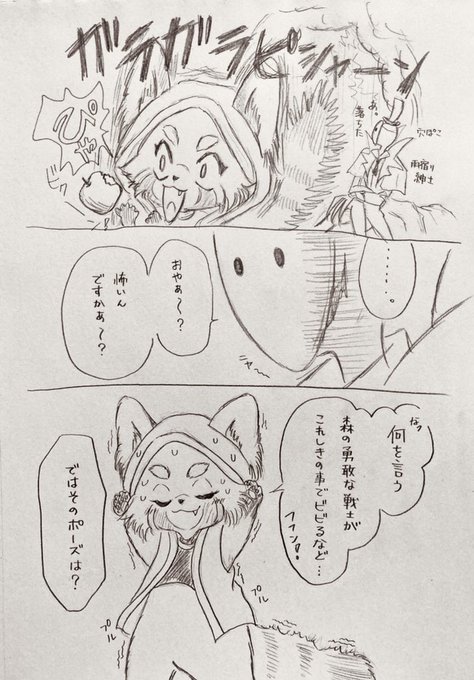 ガラガラピシャーン
あ。
落ちた
穴ぽこ
雨宿り
紳士
ぴゃ
‥‥‥。
おやぁ〜?
怖いん
ですかぁ〜?
ジャ〜
なっ
何を言う
森の勇敢な戦士が
これしきの事でビビるなど…
フフン♪
ではそのポーズは?
プル
プル